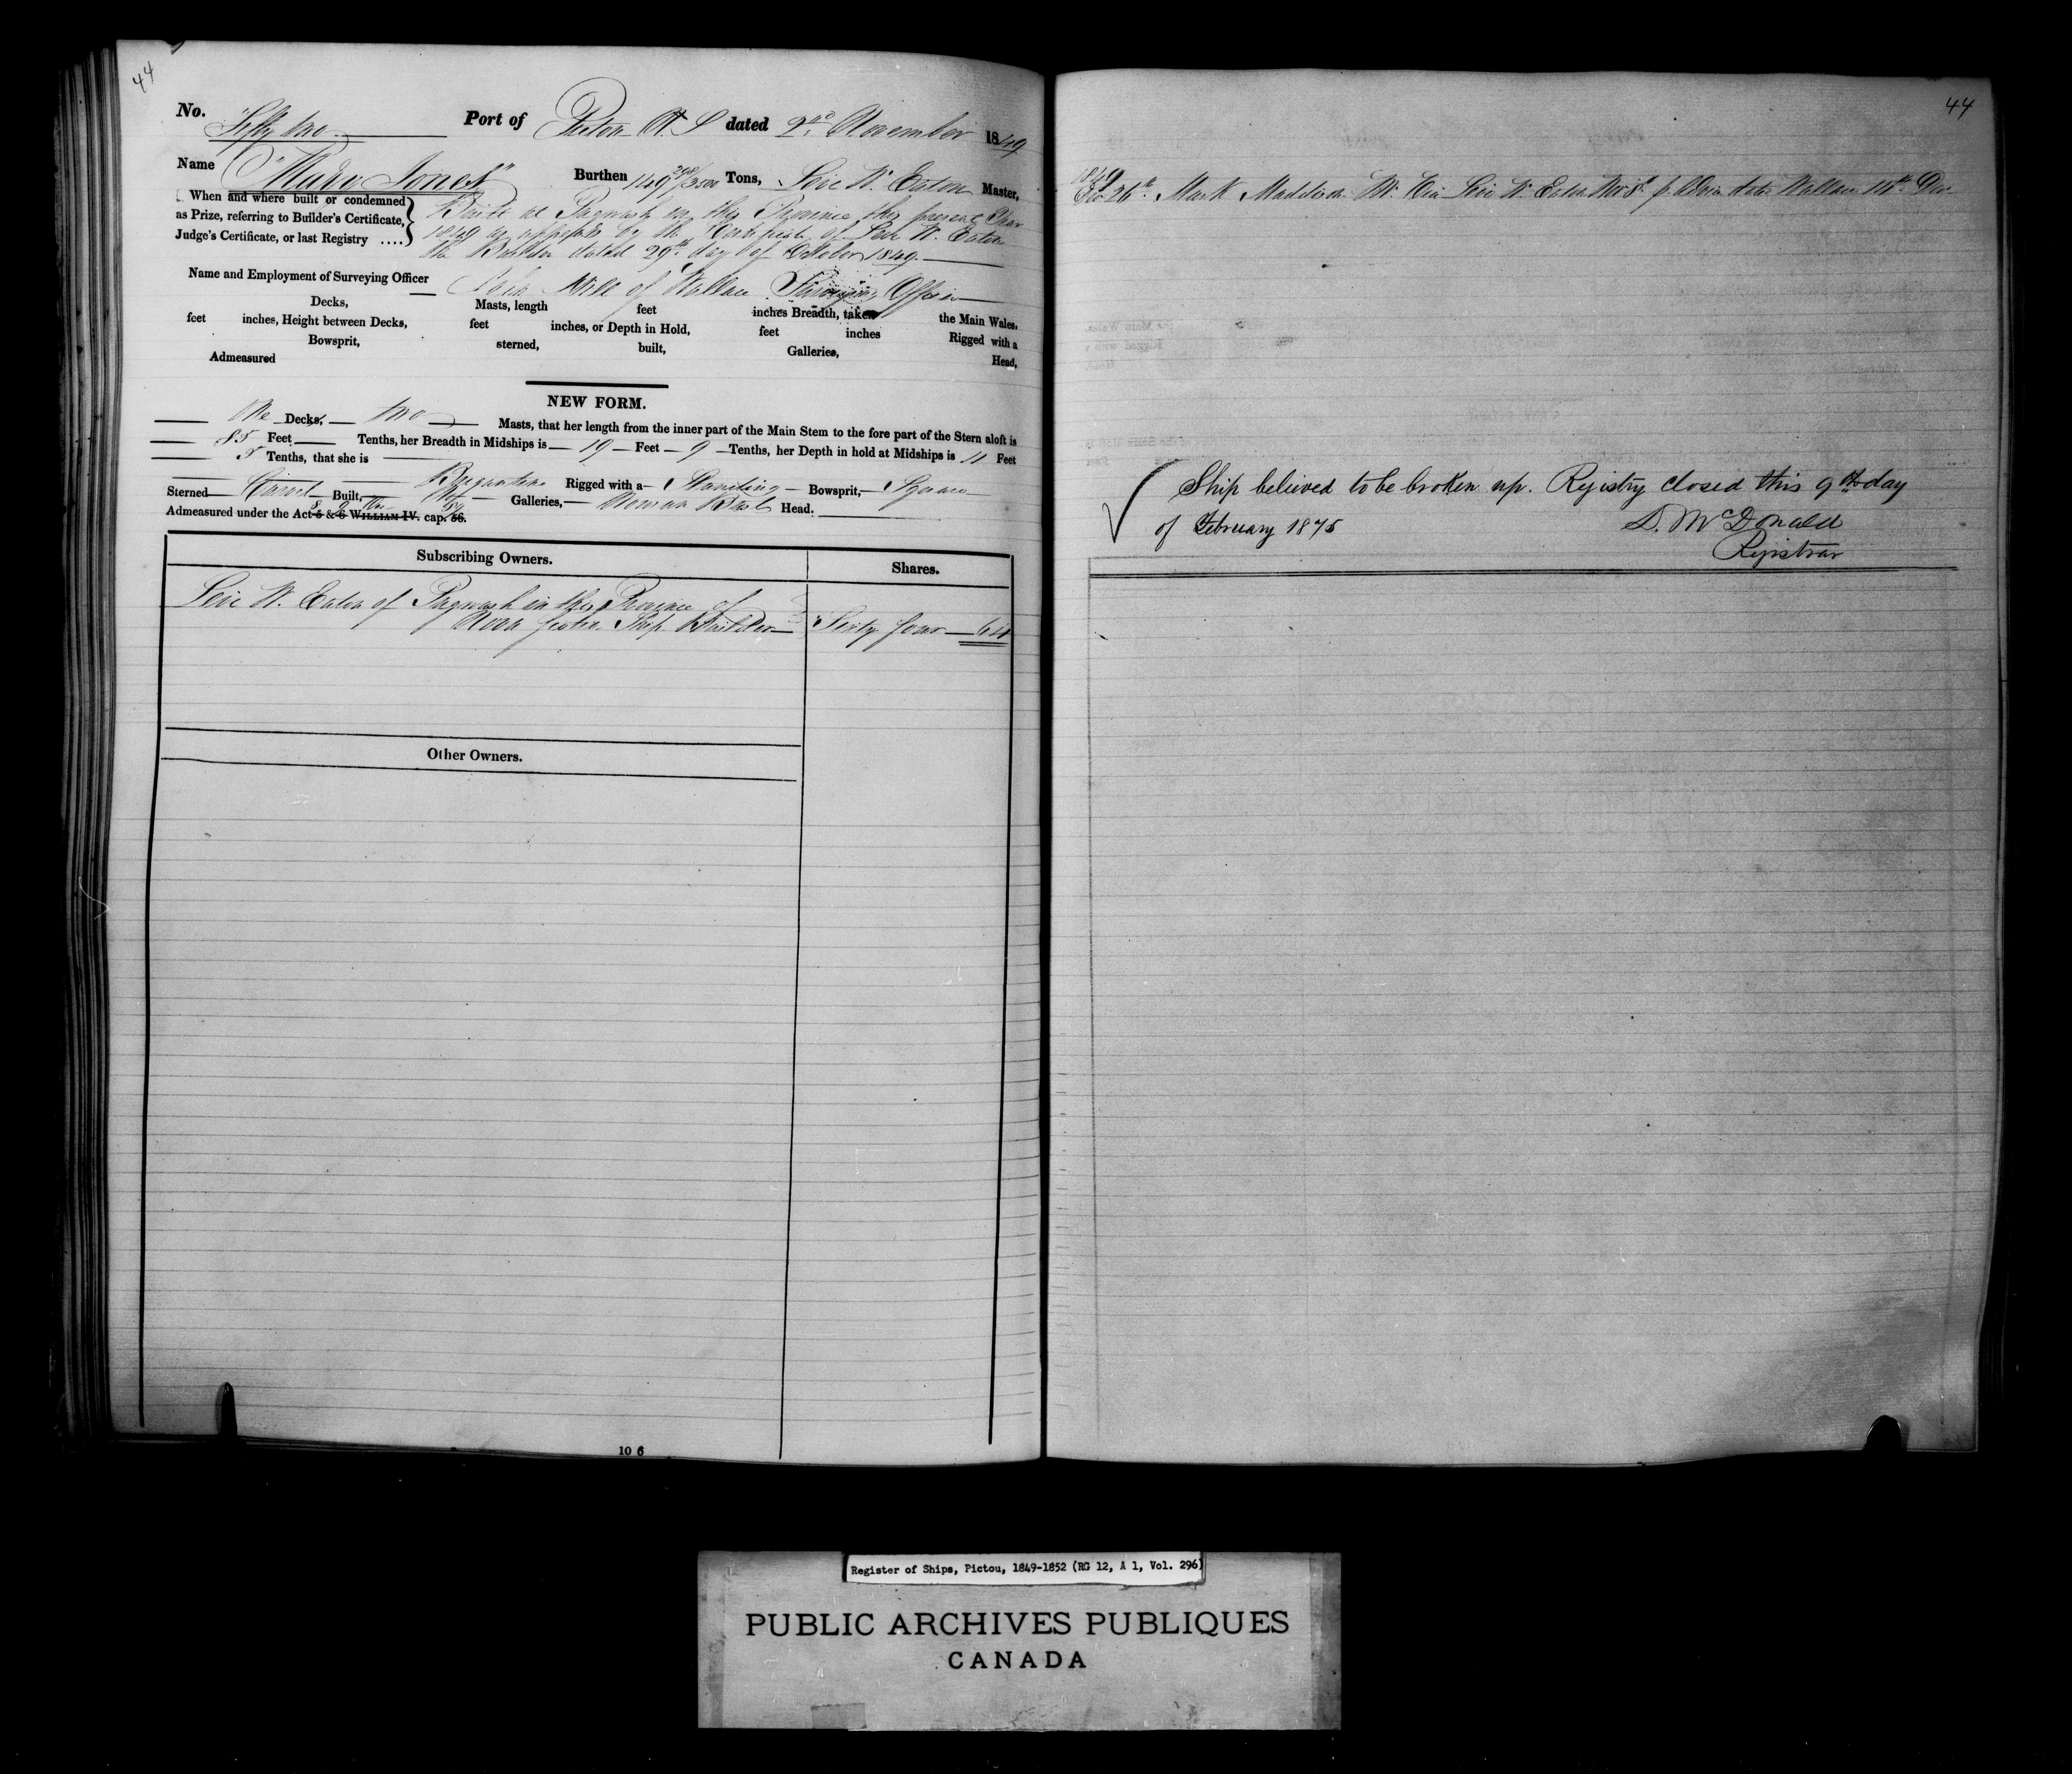 44
No. Fifty two Port of Pictou N. S dated 2nd November 1849
Name "Mary Jones" Burthen 149 298/3500 Tons, Levi W. Eaton Master,
When and where built or condemned as Prize, referring to Builder's Certificate, Judge's Certificate, or last Registry ....
Built at Pugwash in this Province this present Year
1849 as appears by the Certificate of Levi W. Eaton
the Builder dated 29th day of October 1849.
Name and Employment of Surveying Officer
of Wallace Surveying Officer
Decks, Masts, length feet inches Breadth, taken the Main Wales,
feet inches, Height between Decks, feet inches, or Depth in Hold, feet inches Rigged with a
Bowsprit, sterned, built, Galleries, Head,
Admeasured
NEW FORM.
One Decks, two Masts, that her length from the inner part of the Main Stem to the fore part of the Stern aloft is
85 Feet Tenths, her Breadth in Midships is 19 Feet 9 Tenths, her Depth in hold at Midships is 11 Feet
Tenths, that she is Brigantine Rigged with a Standing Bowsprit, Square
Sterned Carvel Built, No Galleries, Woman Bust Head.
Admeasured under the Act 5 & 6 WILLIAM IV. cap. 56.
Subscribing Owners. Shares.
Levi W. Eaton of Pugwash in this Province of
Nova Scotia Ship Builder Sixty four 64
Other Owners.
10 6
44
1849
26th Mark Levi W. Eaton Wallace 14th Dec
Ship believed to be broken up. Registry closed this 9th day
of February 1875 D. McDonald
Registrar
Register of Ships, Pictou, 1849-1852 (RG 12, A 1, Vol. 296)
PUBLIC ARCHIVES PUBLIQUES
CANADA